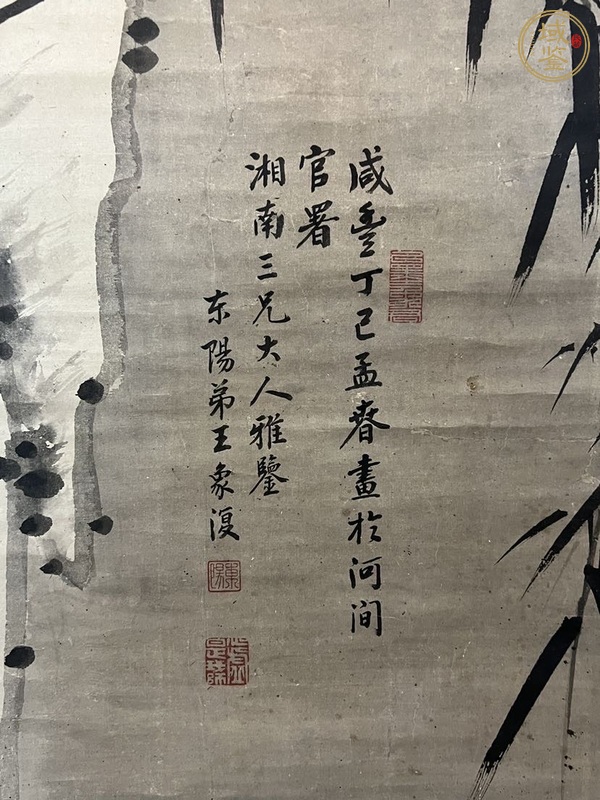 咸豐丁巳孟春畫於河间
官署
湘南三兄大人雅鑒
东陽弟王象復
域鉴